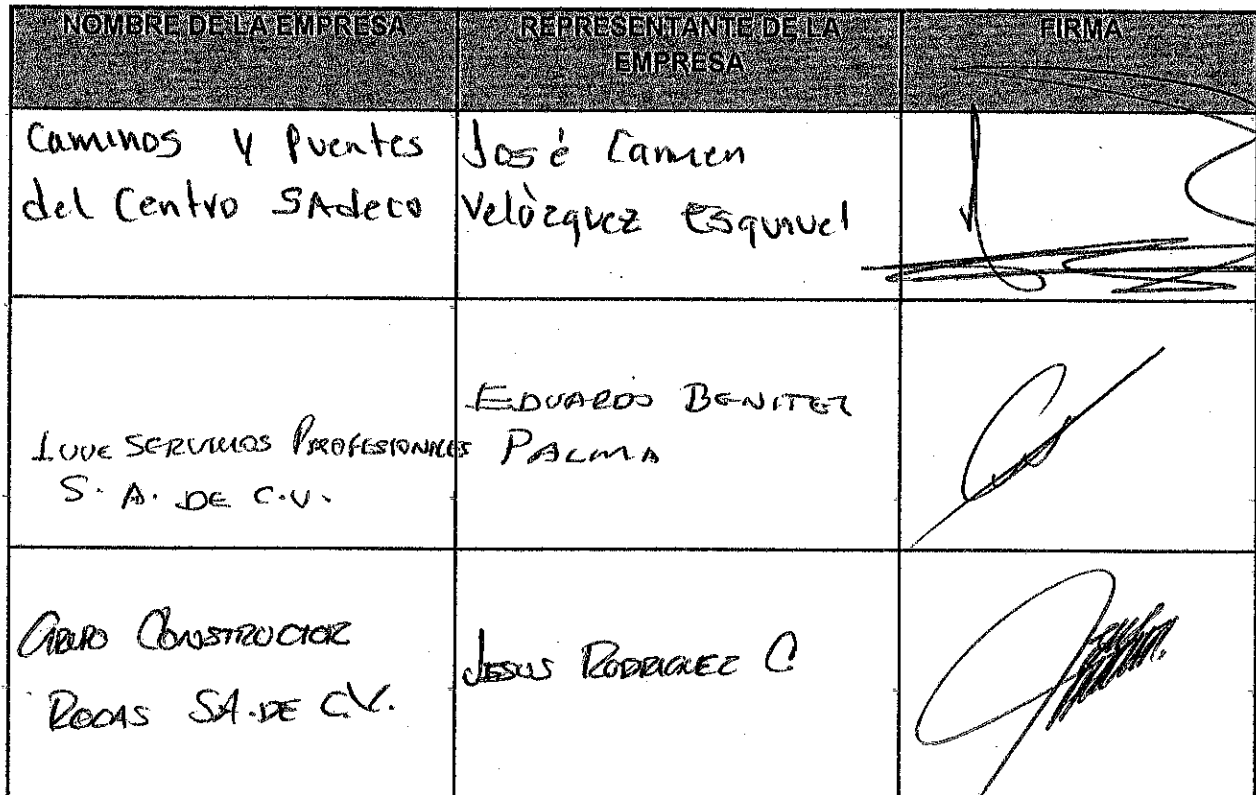 NOMBRE DE LA EMPRESA
REPRESENTANTE DE LA
EMPRESA
FIRMA
Caminos y Puentes
del Centro SAdeco
José Carmen
Velòzquez Esquivel
LUVE SERVICIOS PROFESIONALES
S. A. DE C.V.
EDUARDO BENITEZ
PALMA
GRUPO CONSTRUCTOR
RODAS SA. DE C.V.
JESUS RODRIGUEZ C